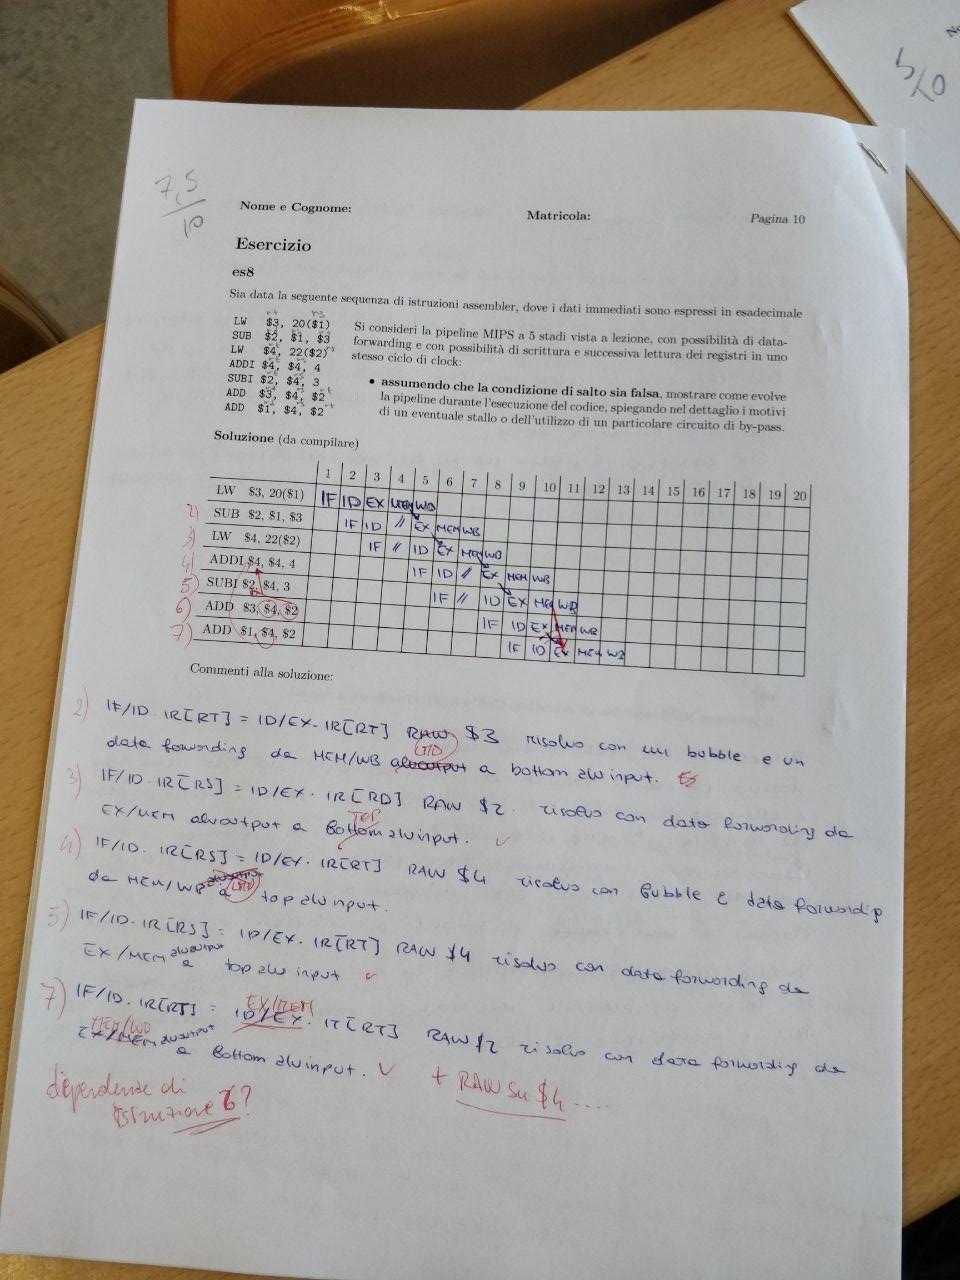 5/10
7,5/10
Nome e Cognome: Matricola: Pagina 10
Esercizio
es8
Sia data la seguente sequenza di istruzioni assembler, dove i dati immediati sono espressi in esadecimale
LW $3, 20($1)
SUB $2, $1, $3
LW $4, 22($2)
ADDI $4, $4, 4
SUBI $2, $4, 3
ADD $3, $4, $2
ADD $1, $4, $2
Si consideri la pipeline MIPS a 5 stadi vista a lezione, con possibilità di data-
forwarding e con possibilità di scrittura e successiva lettura dei registri in uno
stesso ciclo di clock:
• assumendo che la condizione di salto sia falsa, mostrare come evolve
la pipeline durante l'esecuzione del codice, spiegando nel dettaglio i motivi
di un eventuale stallo o dell'utilizzo di un particolare circuito di by-pass.
Soluzione (da compilare)
1 2 3 4 5 6 7 8 9 10 11 12 13 14 15 16 17 18 19 20
LW $3, 20($1) IF ID EX MEM WB
2) SUB $2, $1, $3 IF ID // EX MEM WB
3) LW $4, 22($2) IF // ID EX MEM WB
4) ADDI $4, $4, 4 IF ID // EX MEM WB
5) SUBI $2, $4, 3 IF // ID EX MEM WB
6) ADD $3, $4, $2 IF ID EX MEM WB
7) ADD $1, $4, $2 IF ID EX MEM WB
Commenti alla soluzione:
2) IF/ID. IR[RT] = ID/EX. IR[RT] RAW $3 risolvo con un bubble e un
data forwording da MEM/WB aluoutput a bottom alu input.
3) IF/ID. IR[RS] = ID/EX. IR[RD] RAW $2. risolvo con data forwording da
EX/MEM aluoutput a TOP bottom alu input.
4) IF/ID. IR[RS] = ID/EX. IR[RT] RAW $4 risolvo con bubble e data forwording
da MEM/WB a top alu input.
5) IF/ID. IR[RS] = ID/EX. IR[RT] RAW $4 risolvo con data forwording da
EX/MEM aluoutput a top alu input
7) IF/ID. IR[RT] = EX/MEM ID/EX. IR[RT] RAW $2 risolvo con data forwording da
MEM/WB EX/MEM aluoutput a bottom alu input. + RAW su $4 ....
dipendenze di
istruzione 6?